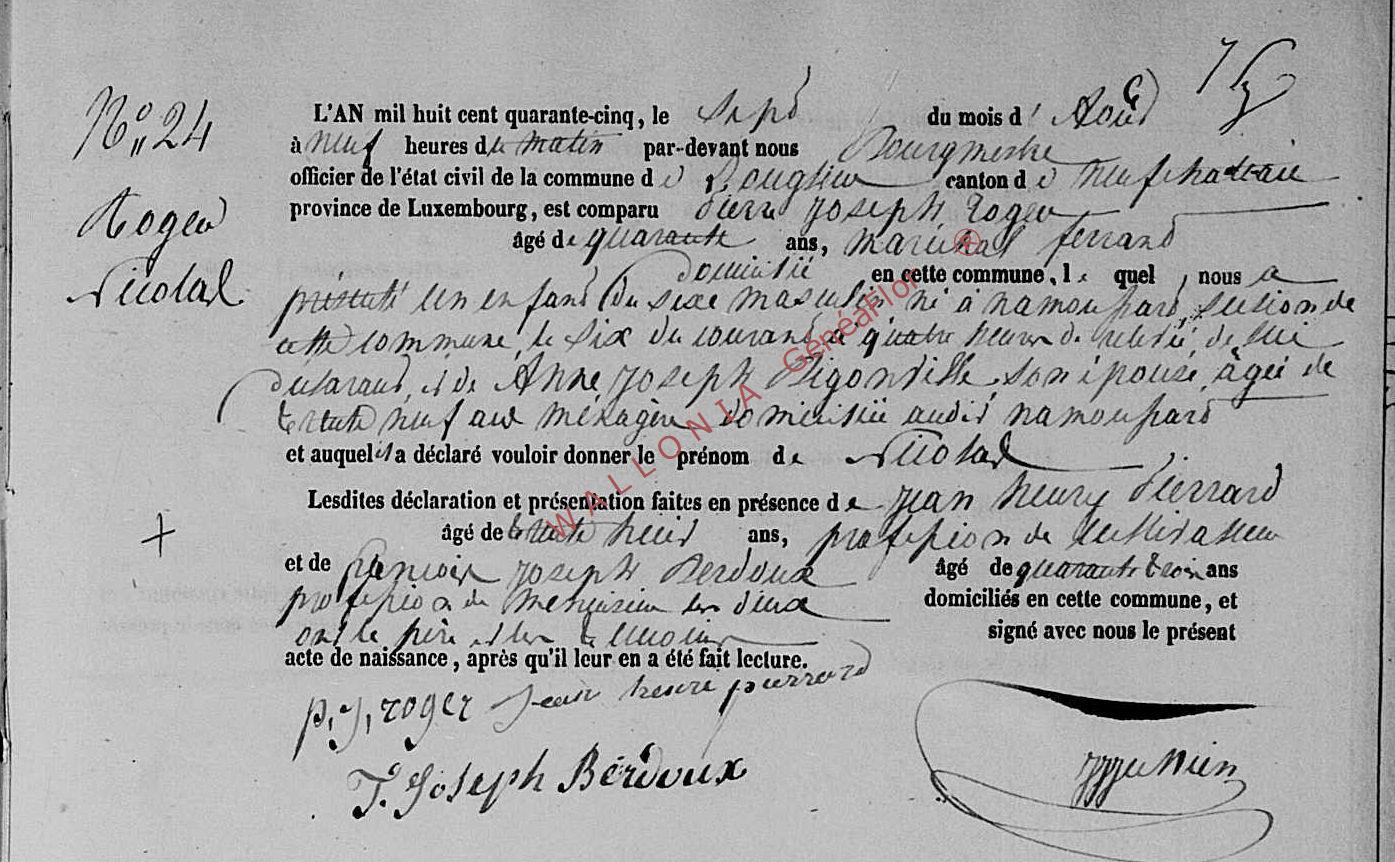 N° 24
Roger
Nicolas
L'AN mil huit cent quarante-cinq, le sept du mois d' Août
à neuf heures du matin par-devant nous Bourgmestre
officier de l'état civil de la commune de canton de neufchateau
province de Luxembourg, est comparu pierre joseph Roger
âgé de quarante ans, maréchal ferrand
domicilié en cette commune, lequel, nous a
présenté un enfant du sexe masculin né à namoupard, section de
cette commune, le six du courant à quatre heures de relevée, de lui
déclarant, et de Anne joseph Bigonville, son épouse, âgée de
trente neuf ans ménagère domiciliée audit namoupard
et auquel il a déclaré vouloir donner le prénom de Nicolas
Lesdites déclaration et présentation faites en présence de jean henry pierrard
âgé de trente huit ans, profession de cultivateur
et de françois joseph Berdoux âgé de quarante trois ans
profession de menuisier les deux domiciliés en cette commune, et
ont le père et les témoins signé avec nous le présent
acte de naissance, après qu'il leur en a été fait lecture.
p. j, roger jean henri pierrard
f. joseph Berdoux
WALLONIA GénéaFlor ®